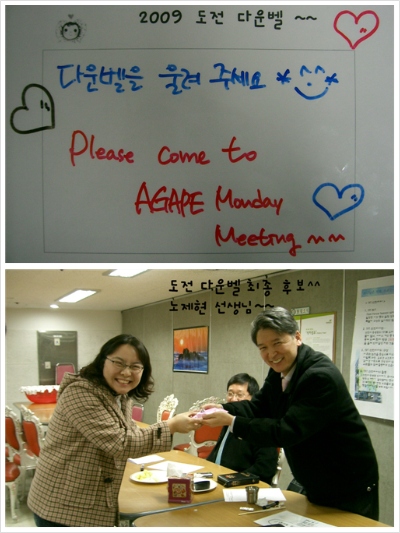 2009 도전 다운벨 ~~
다운벨을 울려 주세요 *^^*
Please come to
AGAPE Monday
Meeting ~~
도전 다운벨 최종 후보^^
노제현 선생님~~